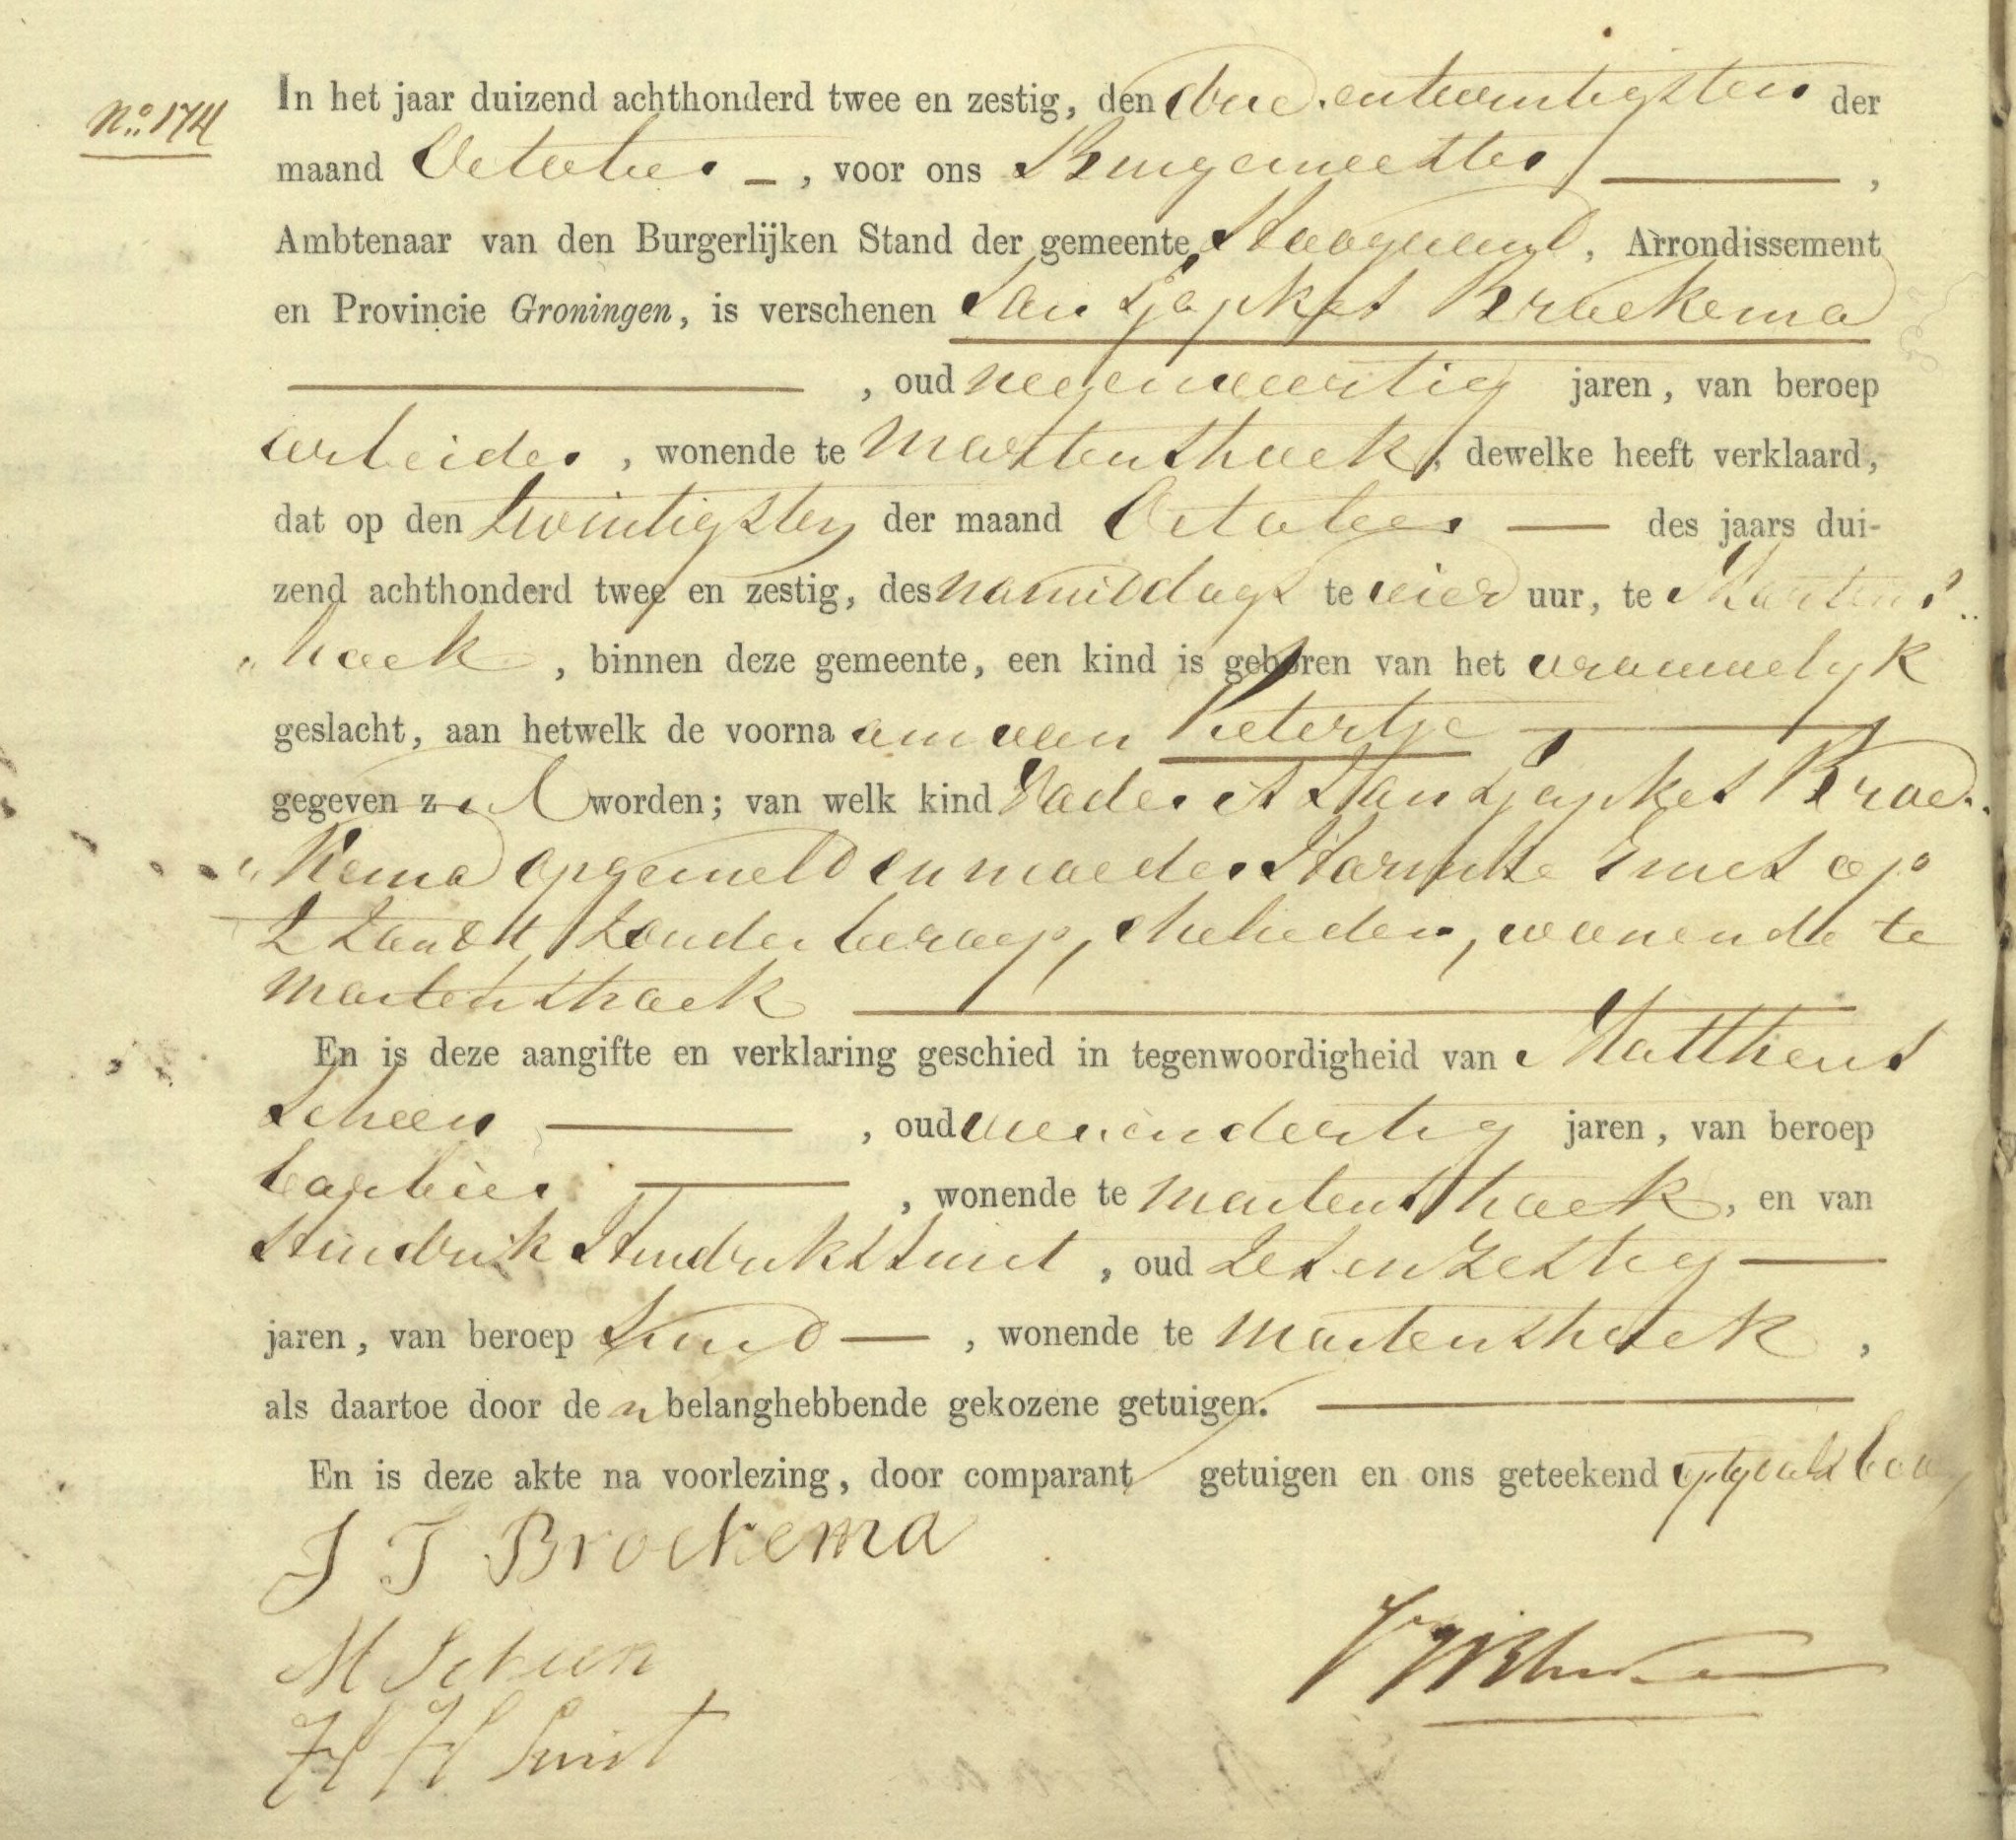 No. 174
In het jaar duizend achthonderd twee en zestig, den drie entwintigsten der
maand October –, voor ons Burgemeester ,
Ambtenaar van den Burgerlijken Stand der gemeente Hoogezand, Arrondissement
en Provincie Groningen, is verschenen Jan Tjapkes Broekema
, oud negenveertig jaren, van beroep
arbeider, wonende te Martenshoek, dewelke heeft verklaard,
dat op den twintigsten der maand October — des jaars dui-
zend achthonderd twee en zestig, des namiddags te vier uur, te Martens
„ hoek, binnen deze gemeente, een kind is geboren van het vrouwelijk
geslacht, aan hetwelk de voorna am van Pietertje
gegeven zal worden; van welk kind Vader is Jan Tjapkes Broe
„ kema opgemeld en moeder Harmke op
t Zandt, zonder beroep, Ehelieden, wonende te
Martenshoek
En is deze aangifte en verklaring geschied in tegenwoordigheid van Mattheus
Scheen , oud vierendertig jaren, van beroep
barbier , wonende te Martenshoek, en van
Hindrik Hindriks Smit, oud zesenzestig
jaren, van beroep Smid —, wonende te Martenshoek,
als daartoe door de n belanghebbende gekozene getuigen.
En is deze akte na voorlezing, door comparant getuigen en ons geteekend
J T Broekema
M Scheen
H H Smit